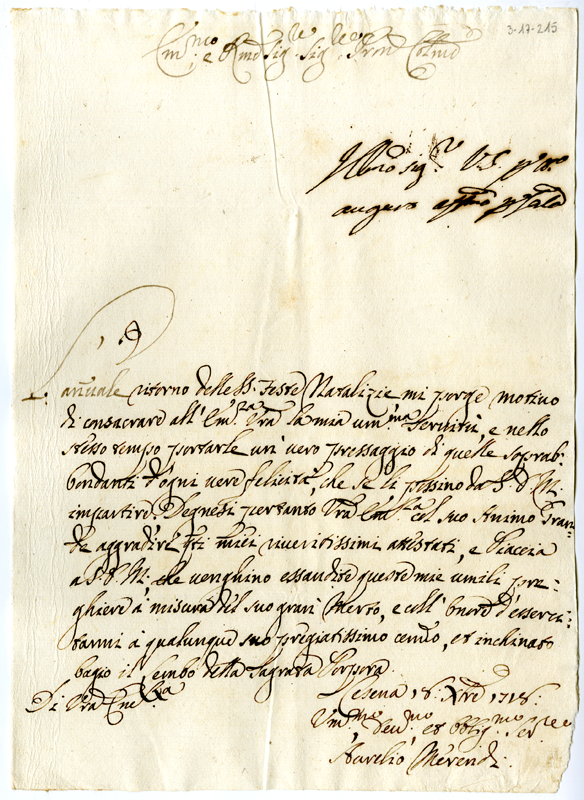 3-17-215
Em.mo e Rmo Sig.re Sig.re Pron Colmo
Illmo sig.r
auguro
L'annuale ritorno delle SS. Feste Natalizie mi porge motivo
di consacrare all'Em.za Vra la mia um.ma Servitù, e nello
stesso tempo portarle un vero pressaggio di quelle soprab-
bondanti d'ogni vere felicità, che se li possino da S. D. M.
impartire. Degnesi pertanto Vra Em.za col suo Animo Gran-
de aggradire q.ti miei riveritissimi attestati, e Piaccia
a S. D. M., che venghino essaudite queste mie umili pre-
ghiere à misura del suo gran Merto, e coll'onore d'esserci-
tarmi à qualunque suo pregiatissimo cenno, et inchinato
bagio il lembo della Sagrata Porpora.
Di Vra Em.za
Cesena 18. Xbre 1718.
Um.mo Dev.mo et Obblig.mo Ser.re
Aurelio Merendi.